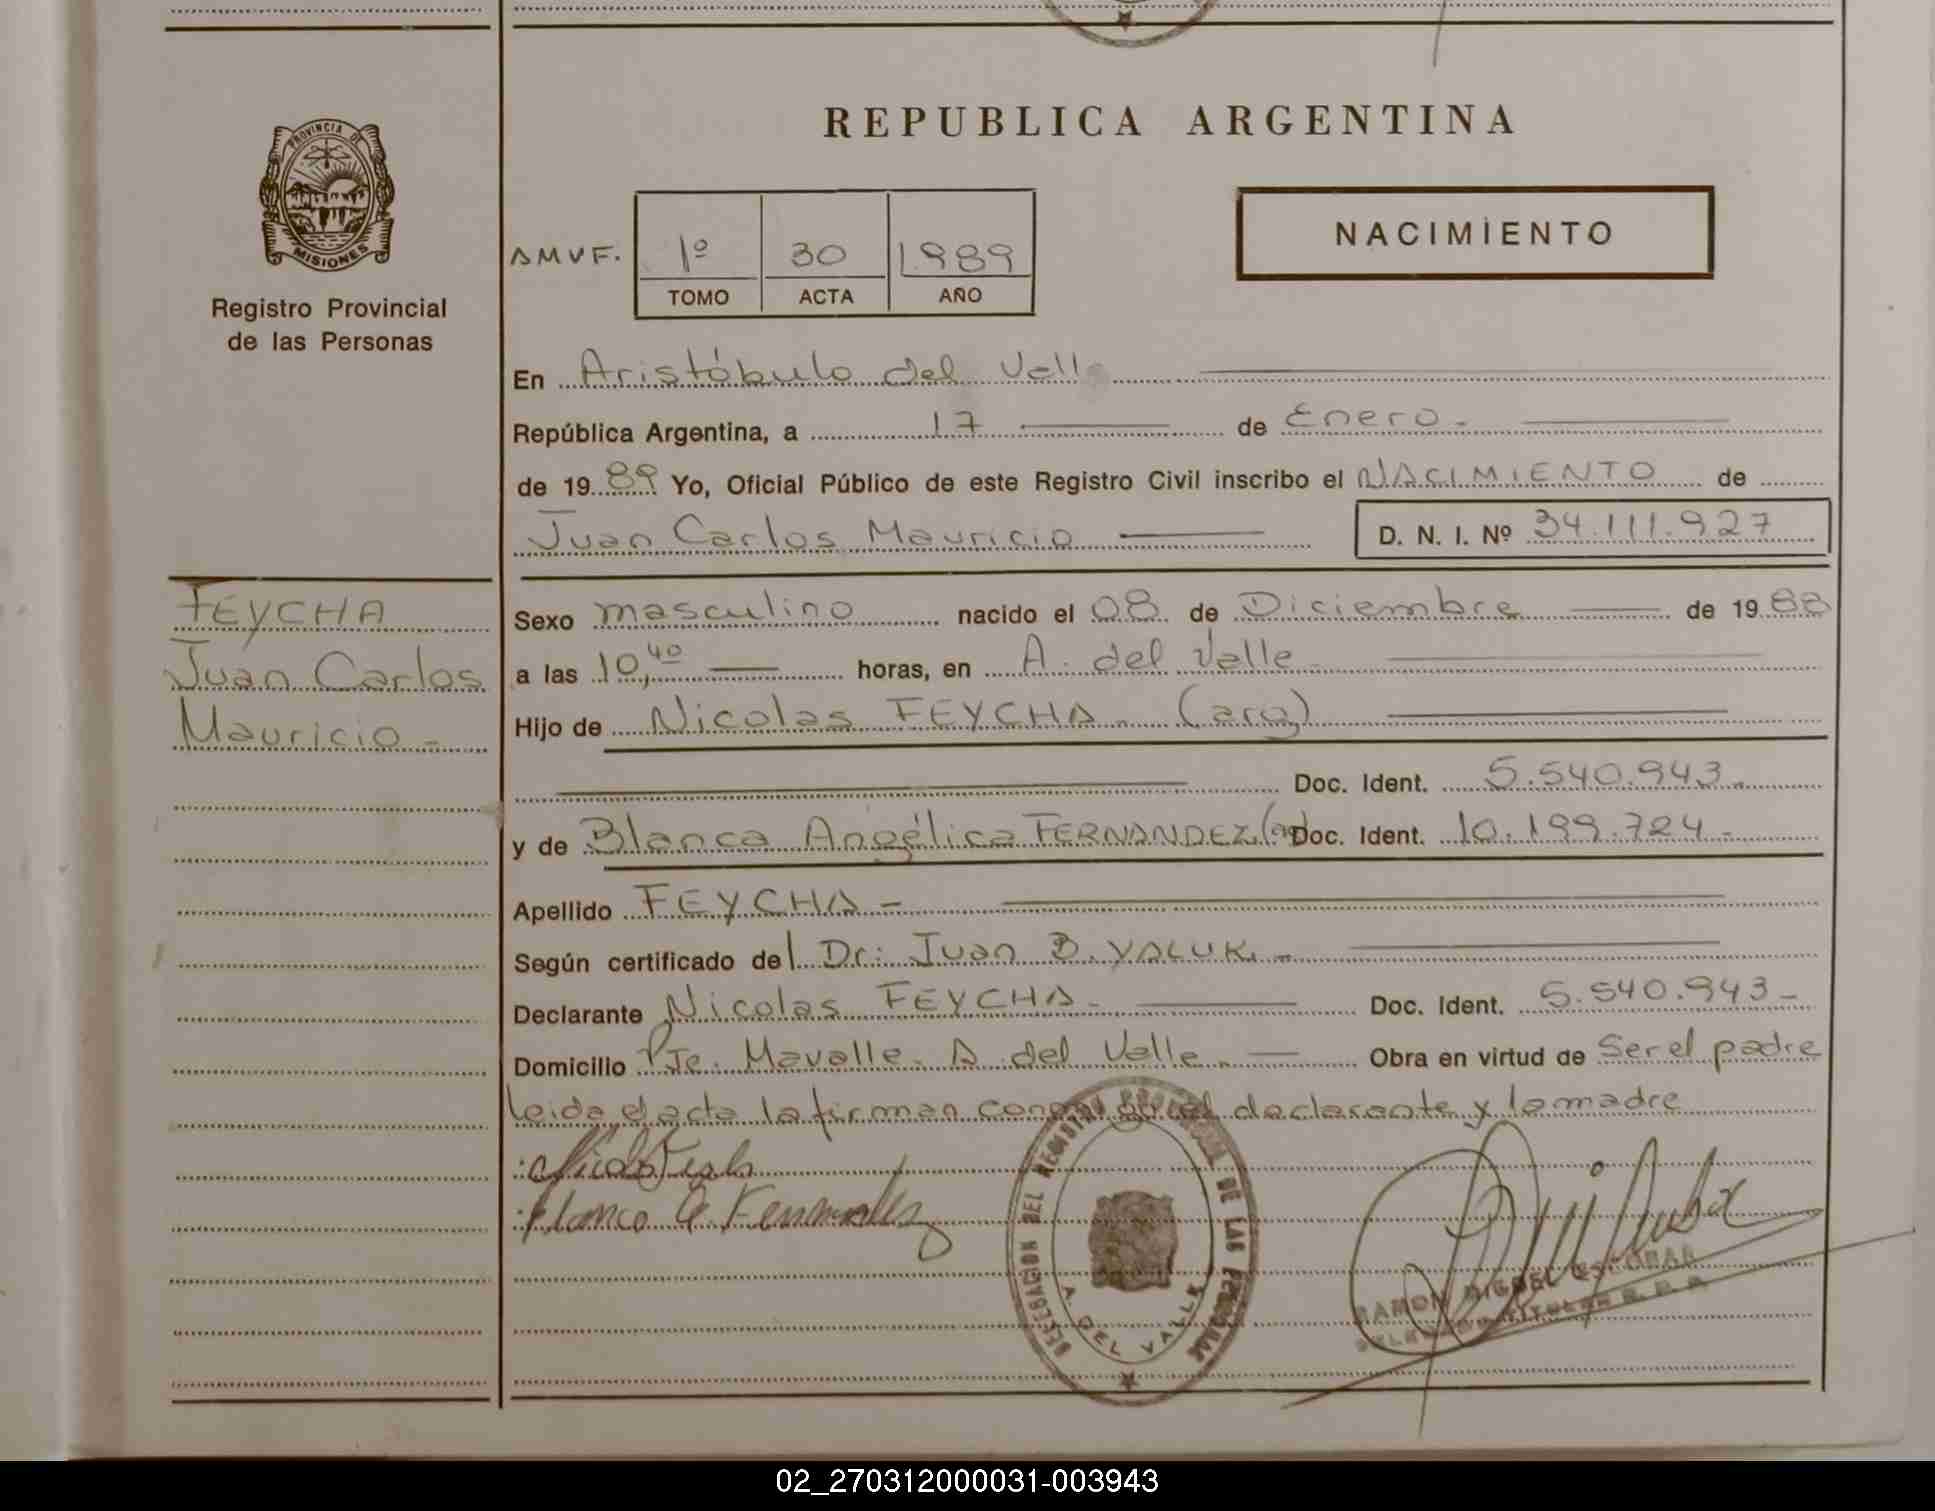 REPUBLICA ARGENTINA
PROVINCIA DE
MISIONES
Registro Provincial
de las Personas
AMVF.
1º 30 1989
TOMO ACTA AÑO
NACIMIENTO
En Aristóbulo del Valle
República Argentina, a 17 de Enero.
de 1989 Yo, Oficial Público de este Registro Civil inscribo el NACIMIENTO de
Juan Carlos Mauricio D. N. I. Nº 34.111.927
FEYCHA
Juan Carlos
Mauricio -
Sexo masculino nacido el 08 de Diciembre de 1988
a las 10,40 horas, en A. del Valle
Hijo de Nicolas FEYCHA. (arg)
Doc. Ident. 5.540.943.-
y de Blanca Angélica FERNANDEZ (arg) Doc. Ident. 10.199.724.-
Apellido FEYCHA -
Según certificado del Dr: Juan B. YALUK. -
Declarante Nicolas FEYCHA.- Doc. Ident. 5.540.943-
Domicilio Pje. Mavalle. A. del Valle. - Obra en virtud de Ser el padre
Leida el acta la firman conmigo el declarante y la madre
Blanca A. Fernandez
DELEGACION DEL REGISTRO PROVINCIAL DE LAS PERSONAS
A. DEL VALLE
RAMON MIGUEL ESCOBAR
TITULAR R. P. P.
02_270312000031-003943